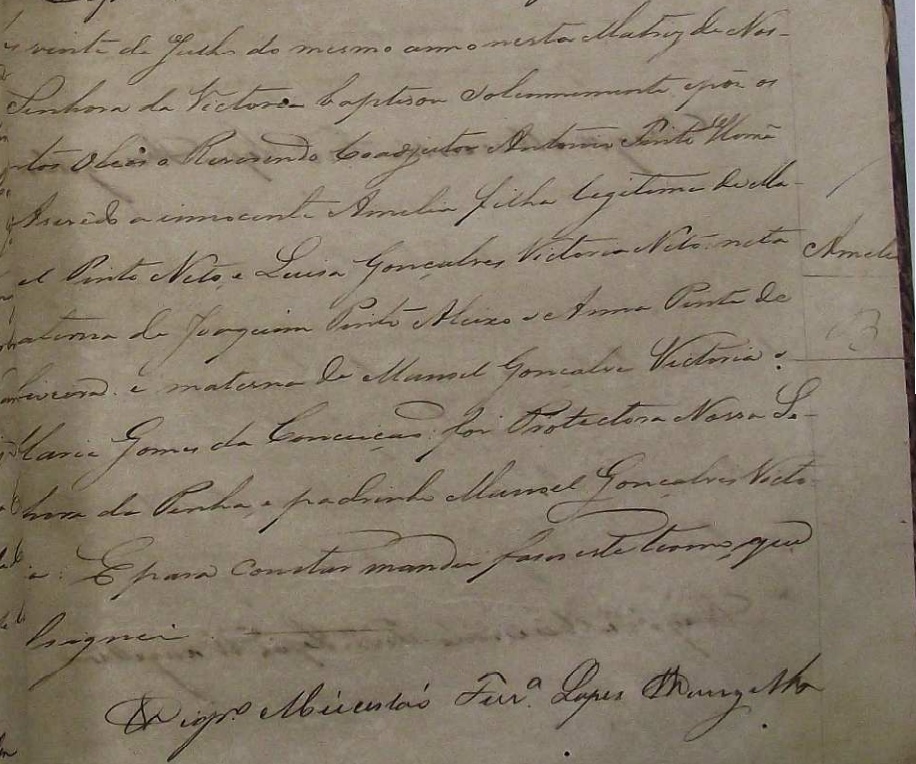 vinte de Julho do mesmo anno nesta Matriz de Nos-
Senhora da Victoria baptisou solennemente e pôs os
tos Oleos o Reverendo Coadjutor Antonio Pinto Homẽ
Asevêdo a innocente Amelia filha legitima de Ma-
el Pinto Neto, e Luisa Goncalves Victoria Neto: neta
aterna de Joaquim Pinto Aleixo e Anna Pinto de
e materna de Manoel Goncalves Victoria e
Maria Gomes da Conceiçao: foi Protectora Nossa Se-
hora da Penha, e padrinho Manoel Gonçalves Victo
ia: E para constar mandei faser este termo, que
assignei
O Vigr.º Missesláo Ferr.ª Lopes
Ameli